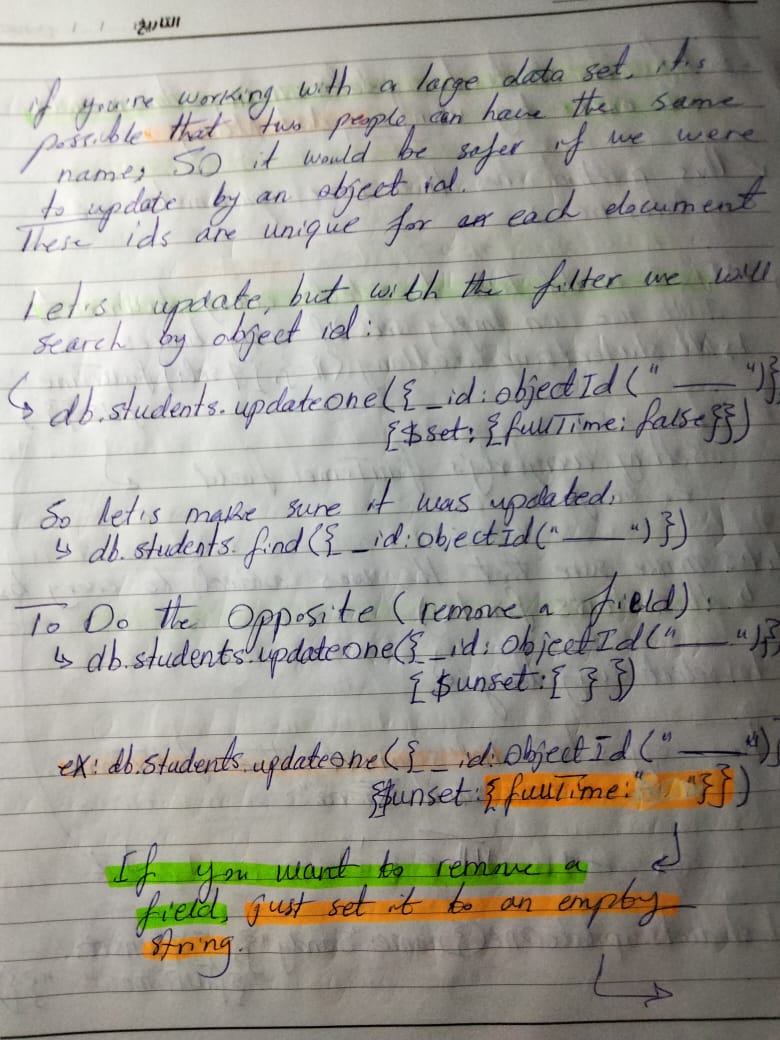 if you're working with a large data set, it's
possible that two people can have the same
name, SO it would be safer if we were
to update by an object id.
These ids are unique for each document
Let's update, but with the filter we will
search by object id:
↳ db.students.updateone({_id:objectId("____")}
{$set: {fullTime: false}})
So let's make sure it was updated,
↳ db.students.find({_id:objectId("____")})
To Do the Opposite (remove a field):
↳ db.students.updateone({_id:ObjectId("____")}
{$unset:{ }})
ex: db.students.updateone({_id:ObjectId("____")}
{$unset:{fullTime:" "}})
If you want to remove a
field, just set it to an empty
string.